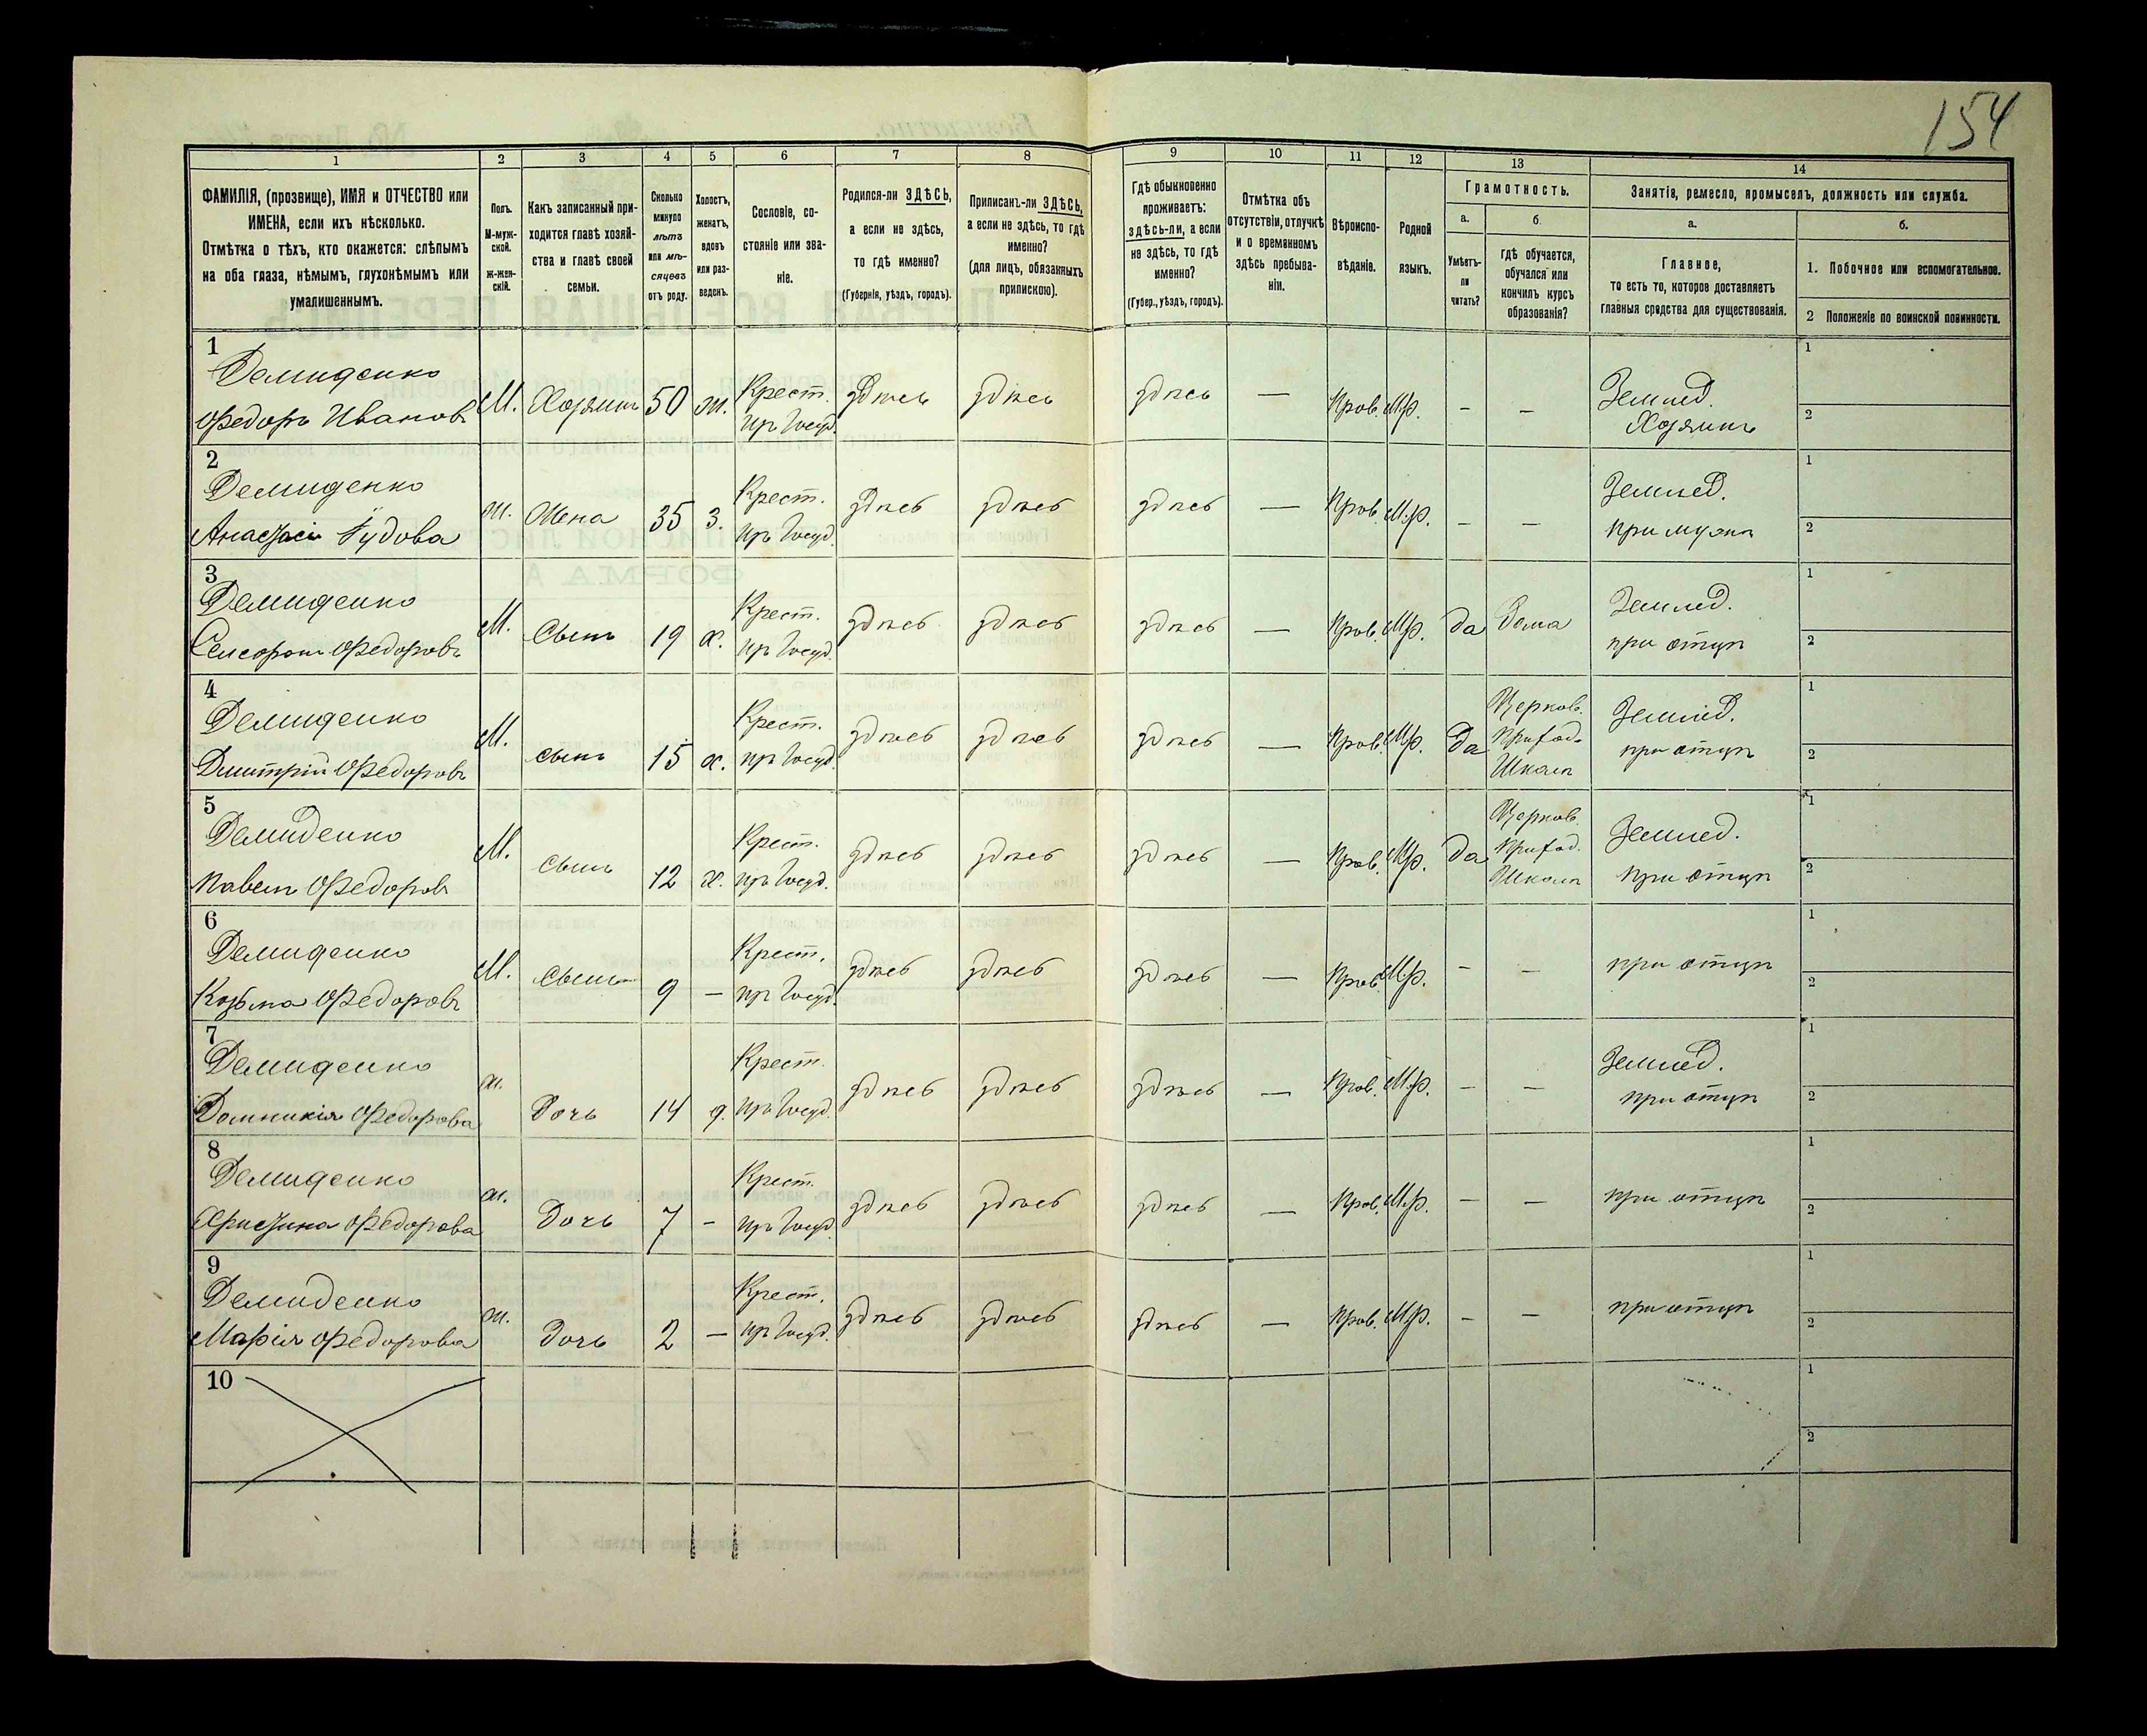 154
1 2 3 4 5 6 7 8 9 10 11 12 13 14
ФАМИЛІЯ, (прозвище), ИМЯ и ОТЧЕСТВО или
ИМЕНА, если ихъ нѣсколько.
Отмѣтка о тѣхъ, кто окажется: слѣпымъ
на оба глаза, нѣмымъ, глухонѣмымъ или
умалишеннымъ.
Полъ.
М-муж-
ской.
ж-жен-
скій.
Какъ записанный при-
ходится главѣ хозяй-
ства и главѣ своей
семьи.
Сколько
минуло
лѣтъ
или мѣ-
сяцевъ
отъ роду.
Холостъ,
женатъ,
вдовъ
или раз-
веденъ.
Сословіе, со-
стояніе или зва-
ніе.
Родился-ли ЗДѢСЬ,
а если не здѣсь,
то гдѣ именно?
(Губернія, уѣздъ, городъ).
Приписанъ-ли ЗДѢСЬ,
а если не здѣсь, то гдѣ
именно?
(для лицъ, обязанныхъ
припискою).
Гдѣ обыкновенно
проживаетъ:
здѣсь-ли, а если
не здѣсь, то гдѣ
именно?
(Губер., уѣздъ, городъ).
Отмѣтка объ
отсутствіи, отлучкѣ
и о временномъ
здѣсь пребыва-
ніи.
Вѣроиспо-
вѣданіе.
Родной
языкъ.
Грамотность.
а.
Умѣетъ-
ли
читать?
б.
гдѣ обучается,
обучался или
кончилъ курсъ
образованія?
Занятія, ремесло, промыселъ, должность или служба.
а.
Главное,
то есть то, которое доставляетъ
главныя средства для существованія.
б.
1. Побочное или вспомогательное.
2 Положеніе по воинской повинности.
1
Демиденко
Федоръ Ивановъ
М. Хозяинъ 50 ж. Крест. здѣсь здѣсь здѣсь — Прав. М.р. – – Землед.
изъ Госуд. Хозяинъ
1
2
2
Демиденко
Анастасія
ж. Жена 35 з. Крест. здѣсь здѣсь здѣсь — Прав. М.р. – – Землед.
изъ Госуд. при мужѣ
1
2
3
Демиденко
Федоровъ
М. Сынъ 19 х. Крест. здѣсь здѣсь здѣсь — Прав. М.р. да Дома Землед.
изъ Госуд. при отцѣ
1
2
4
Демиденко
Дмитрій Федоровъ
М. сынъ 15 х. Крест. здѣсь здѣсь здѣсь — Прав. М.р. да Церков. Землед.
изъ Госуд. Приход. при отцѣ
Школѣ
1
2
5
Демиденко
Павелъ Федоровъ
М. сынъ 12 х. Крест. здѣсь здѣсь здѣсь — Прав. М.р. да Церков. Землед.
изъ Госуд. Приход. при отцѣ
Школѣ
1
2
6
Демиденко
Козьма Федоровъ
М. сынъ 9 — Крест. здѣсь здѣсь здѣсь — Прав. М.р. – – при отцѣ
изъ Госуд.
1
2
7
Демиденко
Домникія Федорова
ж. Дочь 14 д. Крест. здѣсь здѣсь здѣсь — Прав. М.р. – – Землед.
изъ Госуд. при отцѣ
1
2
8
Демиденко
Христина Федорова
ж. Дочь 7 – Крест. здѣсь здѣсь здѣсь — Прав. М.р. – – при отцѣ
изъ Госуд.
1
2
9
Демиденко
Марія Федорова
ж. Дочь 2 — Крест. здѣсь здѣсь здѣсь — Прав. М.р. – – при отцѣ
изъ Госуд.
1
2
10
1
2